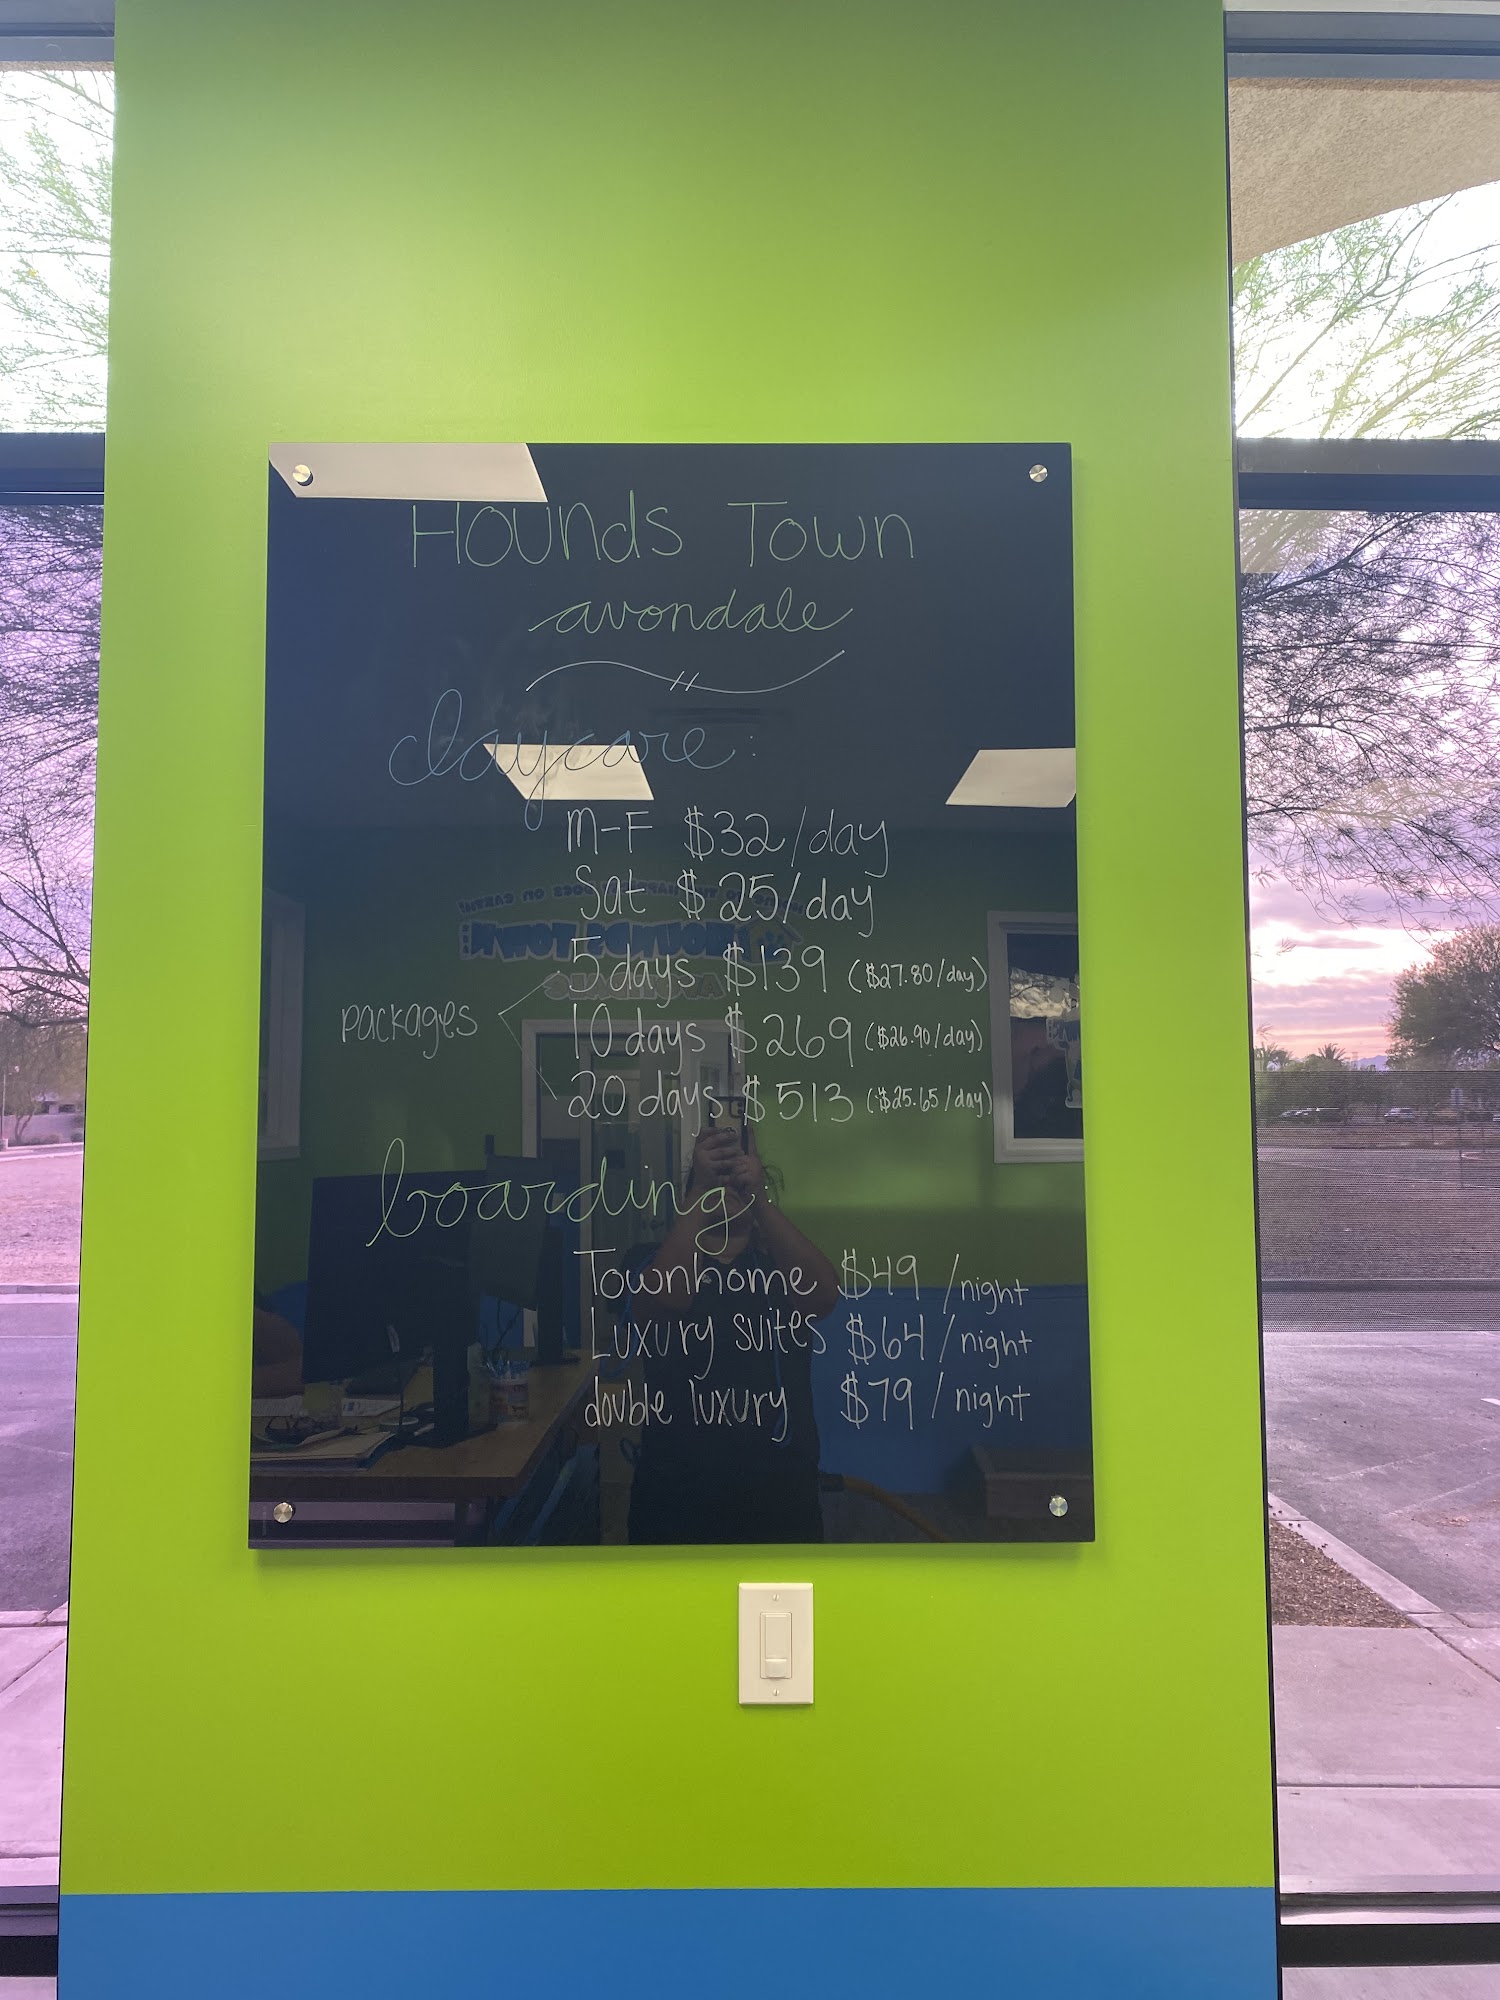 Hounds Town
avondale
daycare:
M-F $32/day
Sat $25/day
packages
5 days $139 ($27.80/day)
10 days $269 ($26.90/day)
20 days $513 ($25.65/day)
boarding:
Townhome $49 /night
Luxury suites $64/night
double luxury $79/night